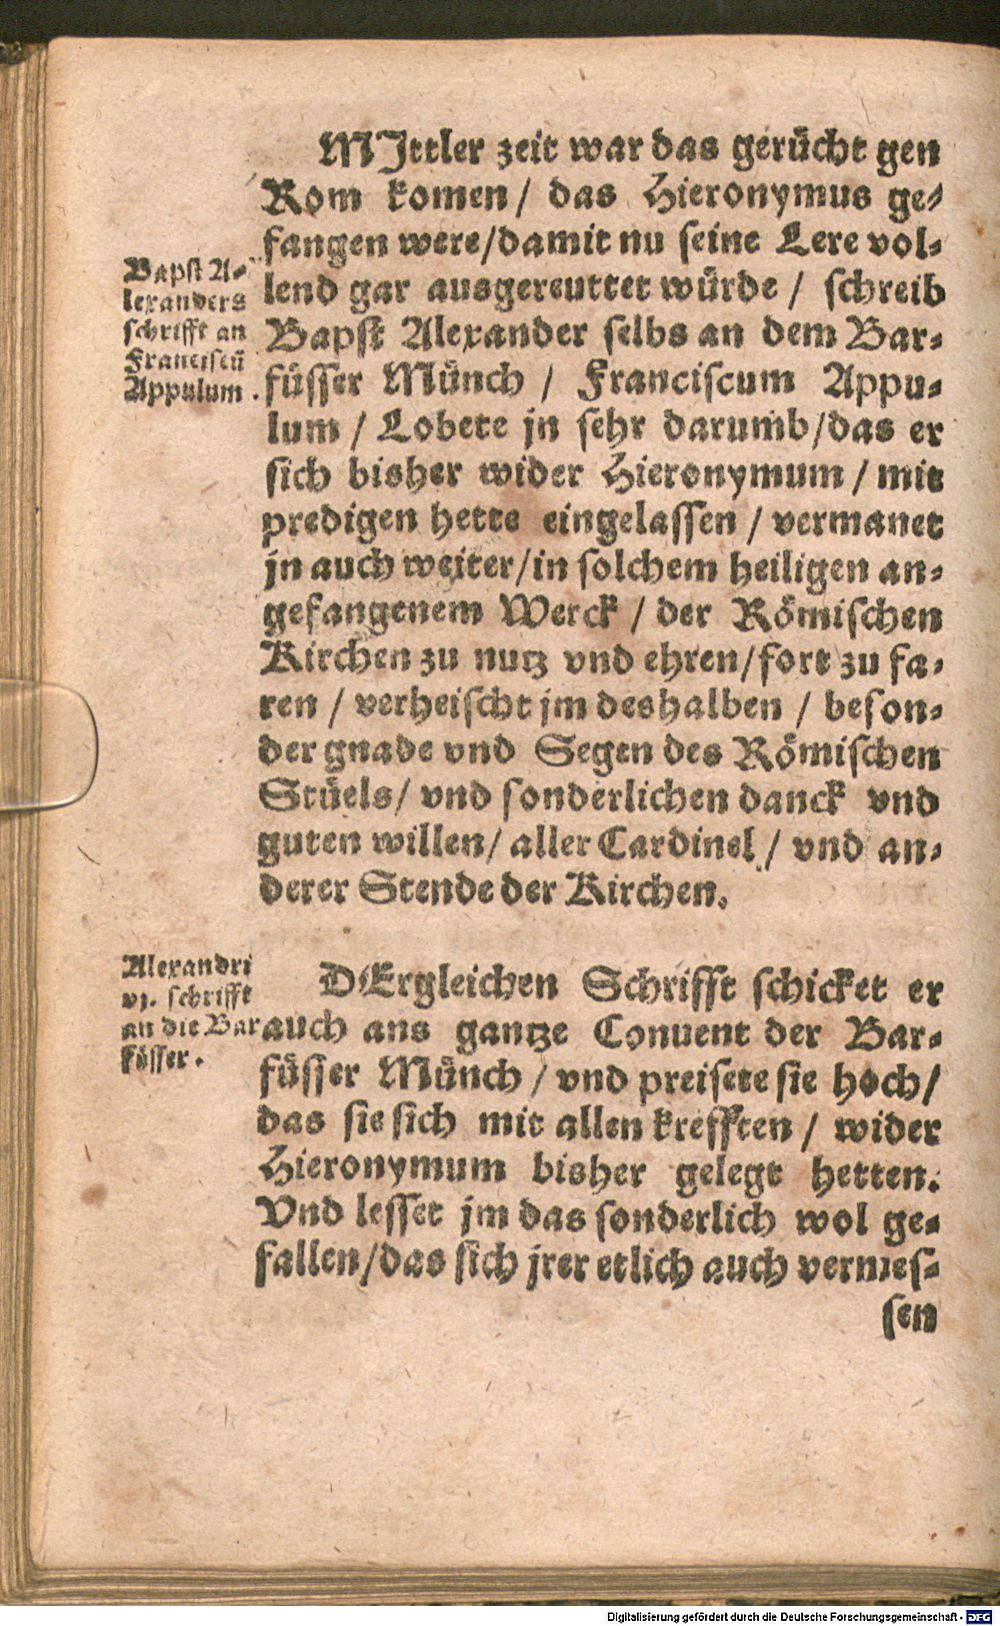 MJttler zeit war das gerücht gen
Rom komen / das Hieronymus ge-
fangen were/damit nu seine Lere vol-
lend gar ausgereuttet würde / schreib
Bapst Alexander selbs an dem Bar-
füsser Münch / Franciscum Appu-
lum / Lobete jn sehr darumb/das er
sich bisher wider Hieronymum / mit
predigen hette eingelassen / vermanet
jn auch weiter/in solchem heiligen an-
gefangenem Werck / der Römischen
Kirchen zu nutz vnd ehren/fort zu fa-
ren / verheischt jm deshalben / beson-
der gnade vnd Segen des Römischen
Stüels/ vnd sonderlichen danck vnd
guten willen/ aller Cardinel / vnd an-
derer Stende der Kirchen.
Bapst A-
lexanders
schrifft an
Franciscū
Appulum.
DErgleichen Schrifft schicket er
auch ans gantze Conuent der Bar-
füsser Münch / vnd preisete sie hoch/
das sie sich mit allen krefften / wider
Hieronymum bisher gelegt hetten.
Vnd lesset jm das sonderlich wol ge-
fallen/das sich jrer etlich auch vermes-
sen
Alexandri
vj. schrifft
an die Bar
füsser.
Digitalisierung gefördert durch die Deutsche Forschungsgemeinschaft - DFG